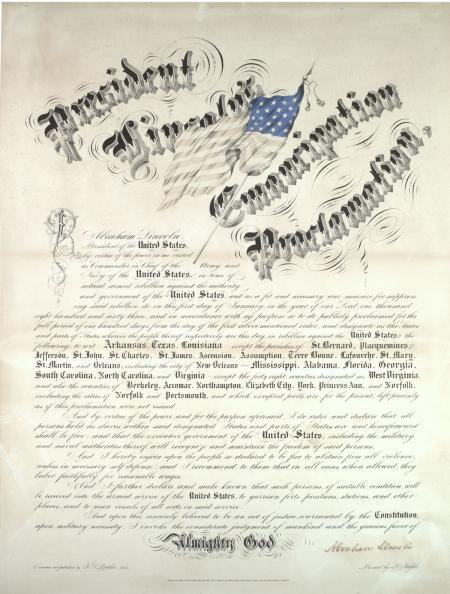 President
Lincoln's
Emancipation
Proclamation.
I, Abraham Lincoln,
President of the United States,
by virtue of the power in me vested
as Commander in Chief of the Army and
Navy of the United States, in time of
actual armed rebellion against the authority
and government of the United States, and as a fit and necessary war measure for suppressing
said rebellion, do, on this first day of January, in the year of our Lord one thousand
eight hundred and sixty three, and in accordance with my purpose so to do publicly proclaimed for the
full period of one hundred days from the day of the first above mentioned order, and designate as the States
and parts of States wherein the people thereof respectively are this day in rebellion against the United States, the
following, to wit: Arkansas, Texas, Louisiana except the parishes of St. Bernard, Plaquemines,
Jefferson, St. John, St. Charles, St. James, Ascension, Assumption, Terre Bonne, Lafourche, St. Mary,
St. Martin, and Orleans, including the city of New Orleans — Mississippi, Alabama, Florida, Georgia,
South Carolina, North Carolina, and Virginia except the forty eight counties designated as West Virginia,
and also the counties of Berkeley, Accomac, Northampton, Elizabeth City, York, Princess Ann, and Norfolk,
including the cities of Norfolk and Portsmouth, and which excepted parts are, for the present, left precisely
as if this proclamation were not issued.
And by virtue of the power and for the purpose aforesaid, I do order and declare that all
persons held as slaves within said designated States and parts of States are and henceforward
shall be free, and that the executive government of the United States, including the military
and naval authorities thereof will recognize and maintain the freedom of said persons.
And I hereby enjoin upon the people so declared to be free to abstain from all violence,
unless in necessary self defense, and I recommend to them that in all cases when allowed, they
labor faithfully for reasonable wages.
And I further declare and make known that such persons of suitable condition will
be received into the armed service of the United States, to garrison forts, positions, stations, and other
places, and to man vessels of all sorts in said service.
And upon this sincerely believed to be an act of justice, warranted by the Constitution,
upon military necessity, I invoke the considerate judgment of mankind and the gracious favor of
Almighty God
Abraham Lincoln